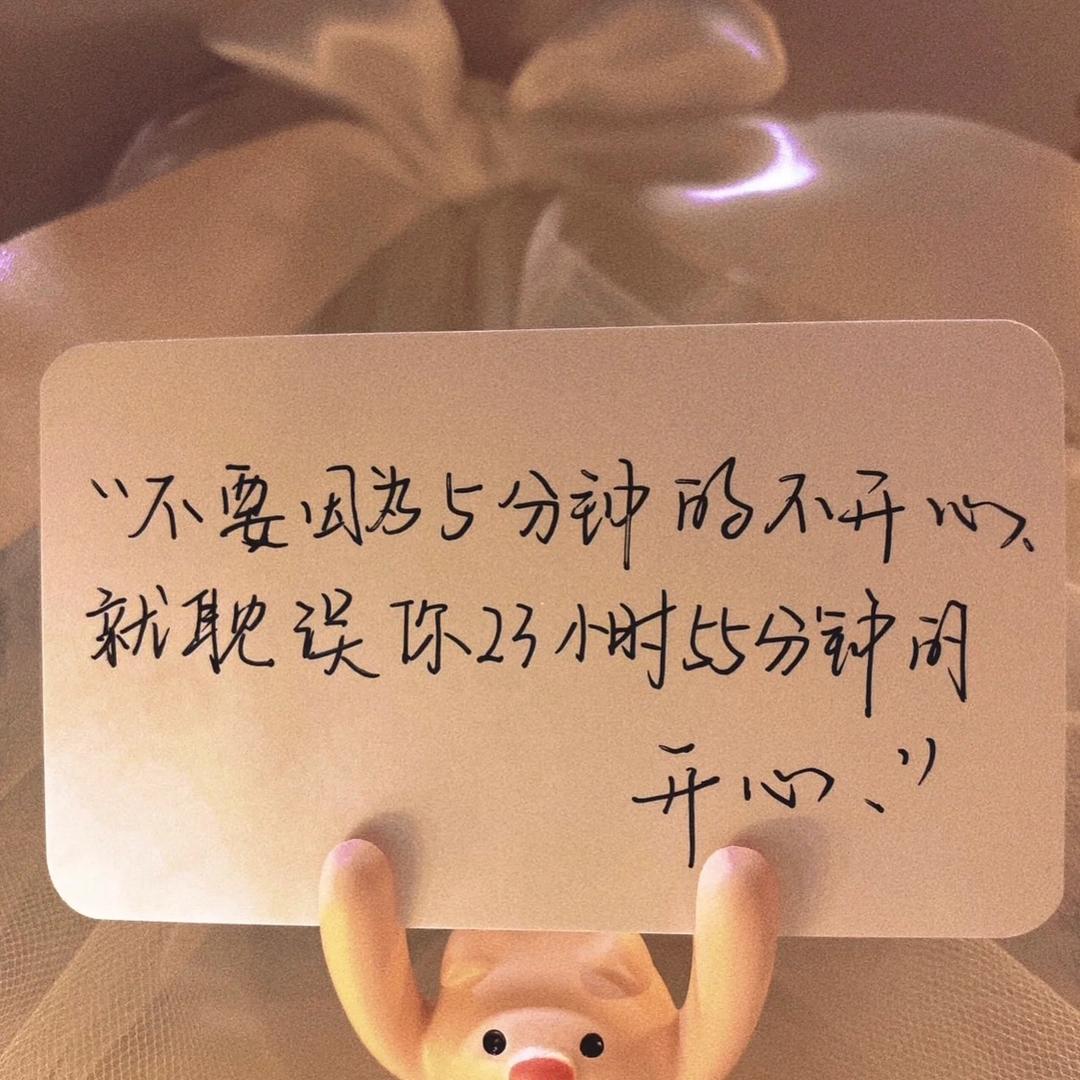 “不要因为5分钟的不开心、
就耽误你23小时55分钟的
开心、”